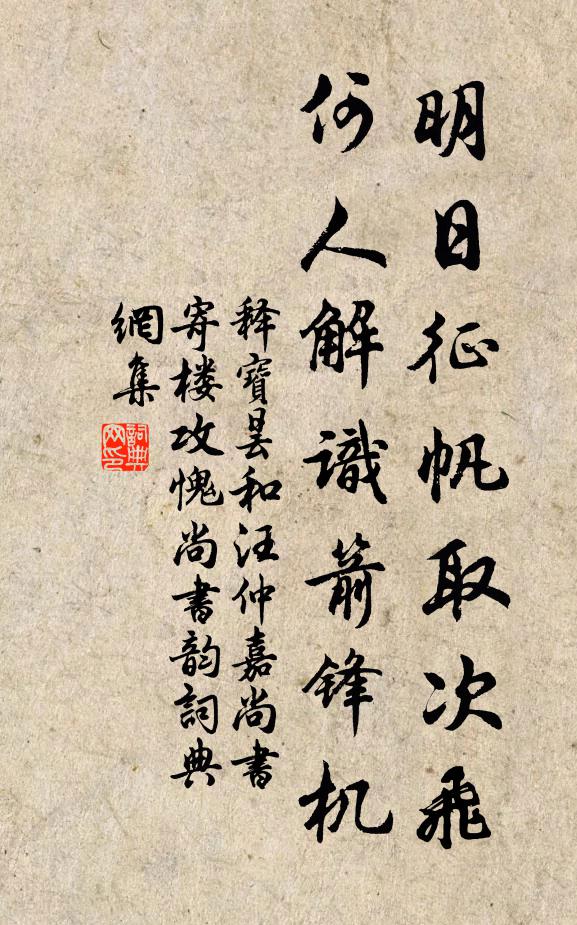 明日征帆取次飛
何人解識箭锋机
释寶昙和汪仲嘉尚書
寄楼攻愧尚書韵詞典
網集
詞典
网印